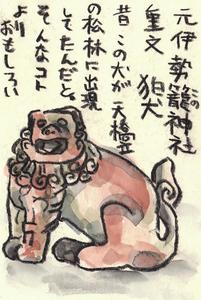 元伊勢籠神社の
重文 狛犬
昔 この犬が天橋立
の松林に出現
してたんだと。
そんなコト
より
おもしろい